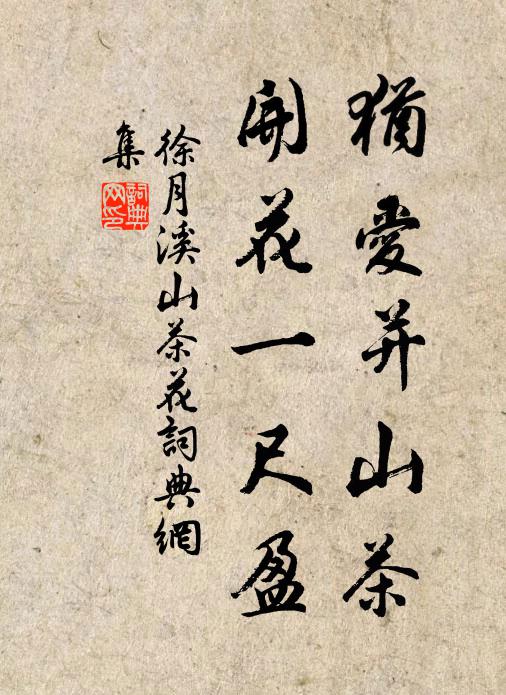 猶愛并山茶
開花一尺盈
徐月溪山茶花詞典網
集
詞典网印